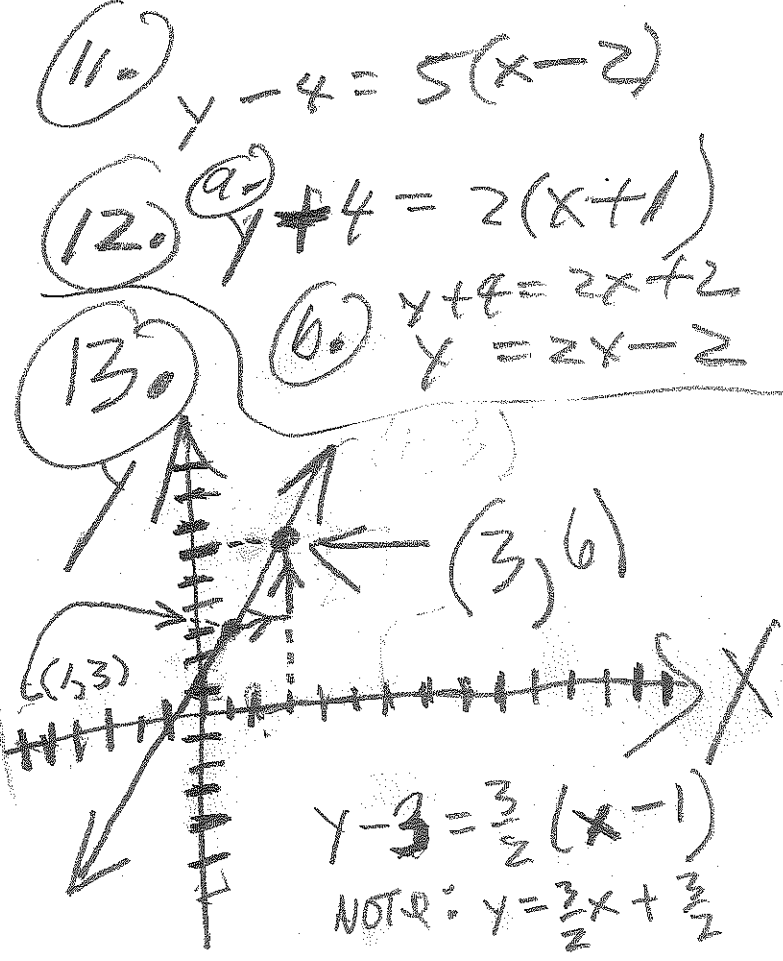 11. y - 4 = 5(x - 2)
12. a. y + 4 = 2(x + 1)
b. y + 4 = 2x + 2
y = 2x - 2
13.
y
(3, 6)
(1, 3)
X
y - 3 = 3/2 (x - 1)
NOTE: y = 3/2 x + 3/2